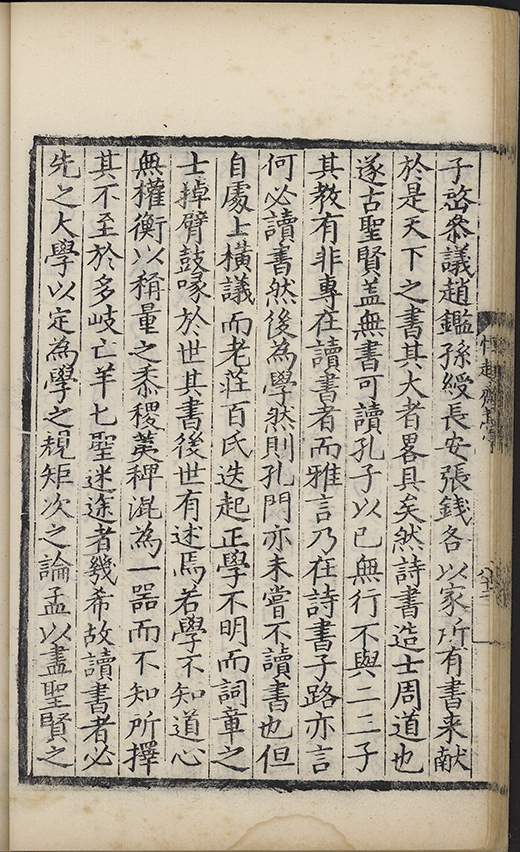 子愍叅議趙鑑孫綬長安張錢各以家所有書来献
於是天下之書其大者畧具矣然詩書造士周道也
遂古聖賢盖無書可讀孔子以已無行不與二三子
其教有非專在讀書者而雅言乃在詩書子路亦言
何必讀書然後為學然則孔門亦未嘗不讀書也但
自處上橫議而老荘百氏迭起正學不明而詞章之
士掉臂鼓喙於世其書後世有述焉若學不知道心
無權衡以稱量之黍稷荑稗混為一噐而不知所擇
其不至於多岐亡羊七聖迷途者幾希故讀書者必
先之大學以定為學之規矩次之論孟以盡聖賢之